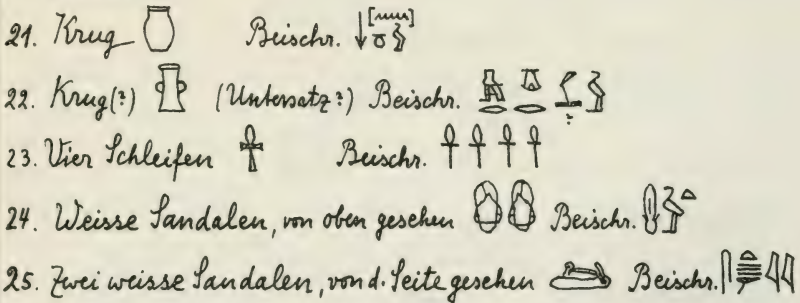 21. Krug Beischr.
22. Krug(?) (Untersatz?) Beischr. ?
23. Vier Schleifen Beischr.
24. Weisse Sandalen, von oben gesehen Beischr.
25. Zwei weisse Sandalen, von d. Seite gesehen Beischr.